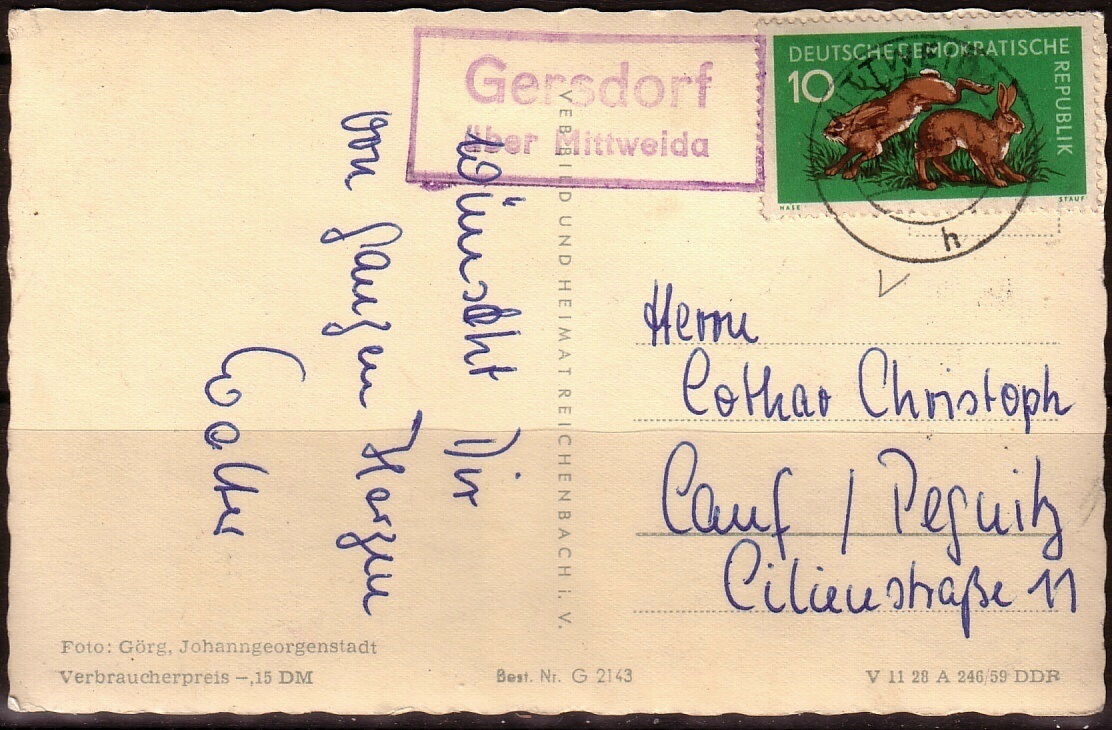 Gersdorf
über Mittweida
DEUTSCHE DEMOKRATISCHE
REPUBLIK
10
HASE
STAUF
MITTWEIDA
h
wünscht Dir
von ganzen Herzen
Walter
VEB BILD UND HEIMAT REICHENBACH i. V.
Herrn
Lothar Christoph
Lauf / Pegnitz
Lilienstraße 11
Foto: Görg, Johanngeorgenstadt
Verbraucherpreis –,15 DM
Best. Nr. G 2143
V 11 28 A 246/59 DDR